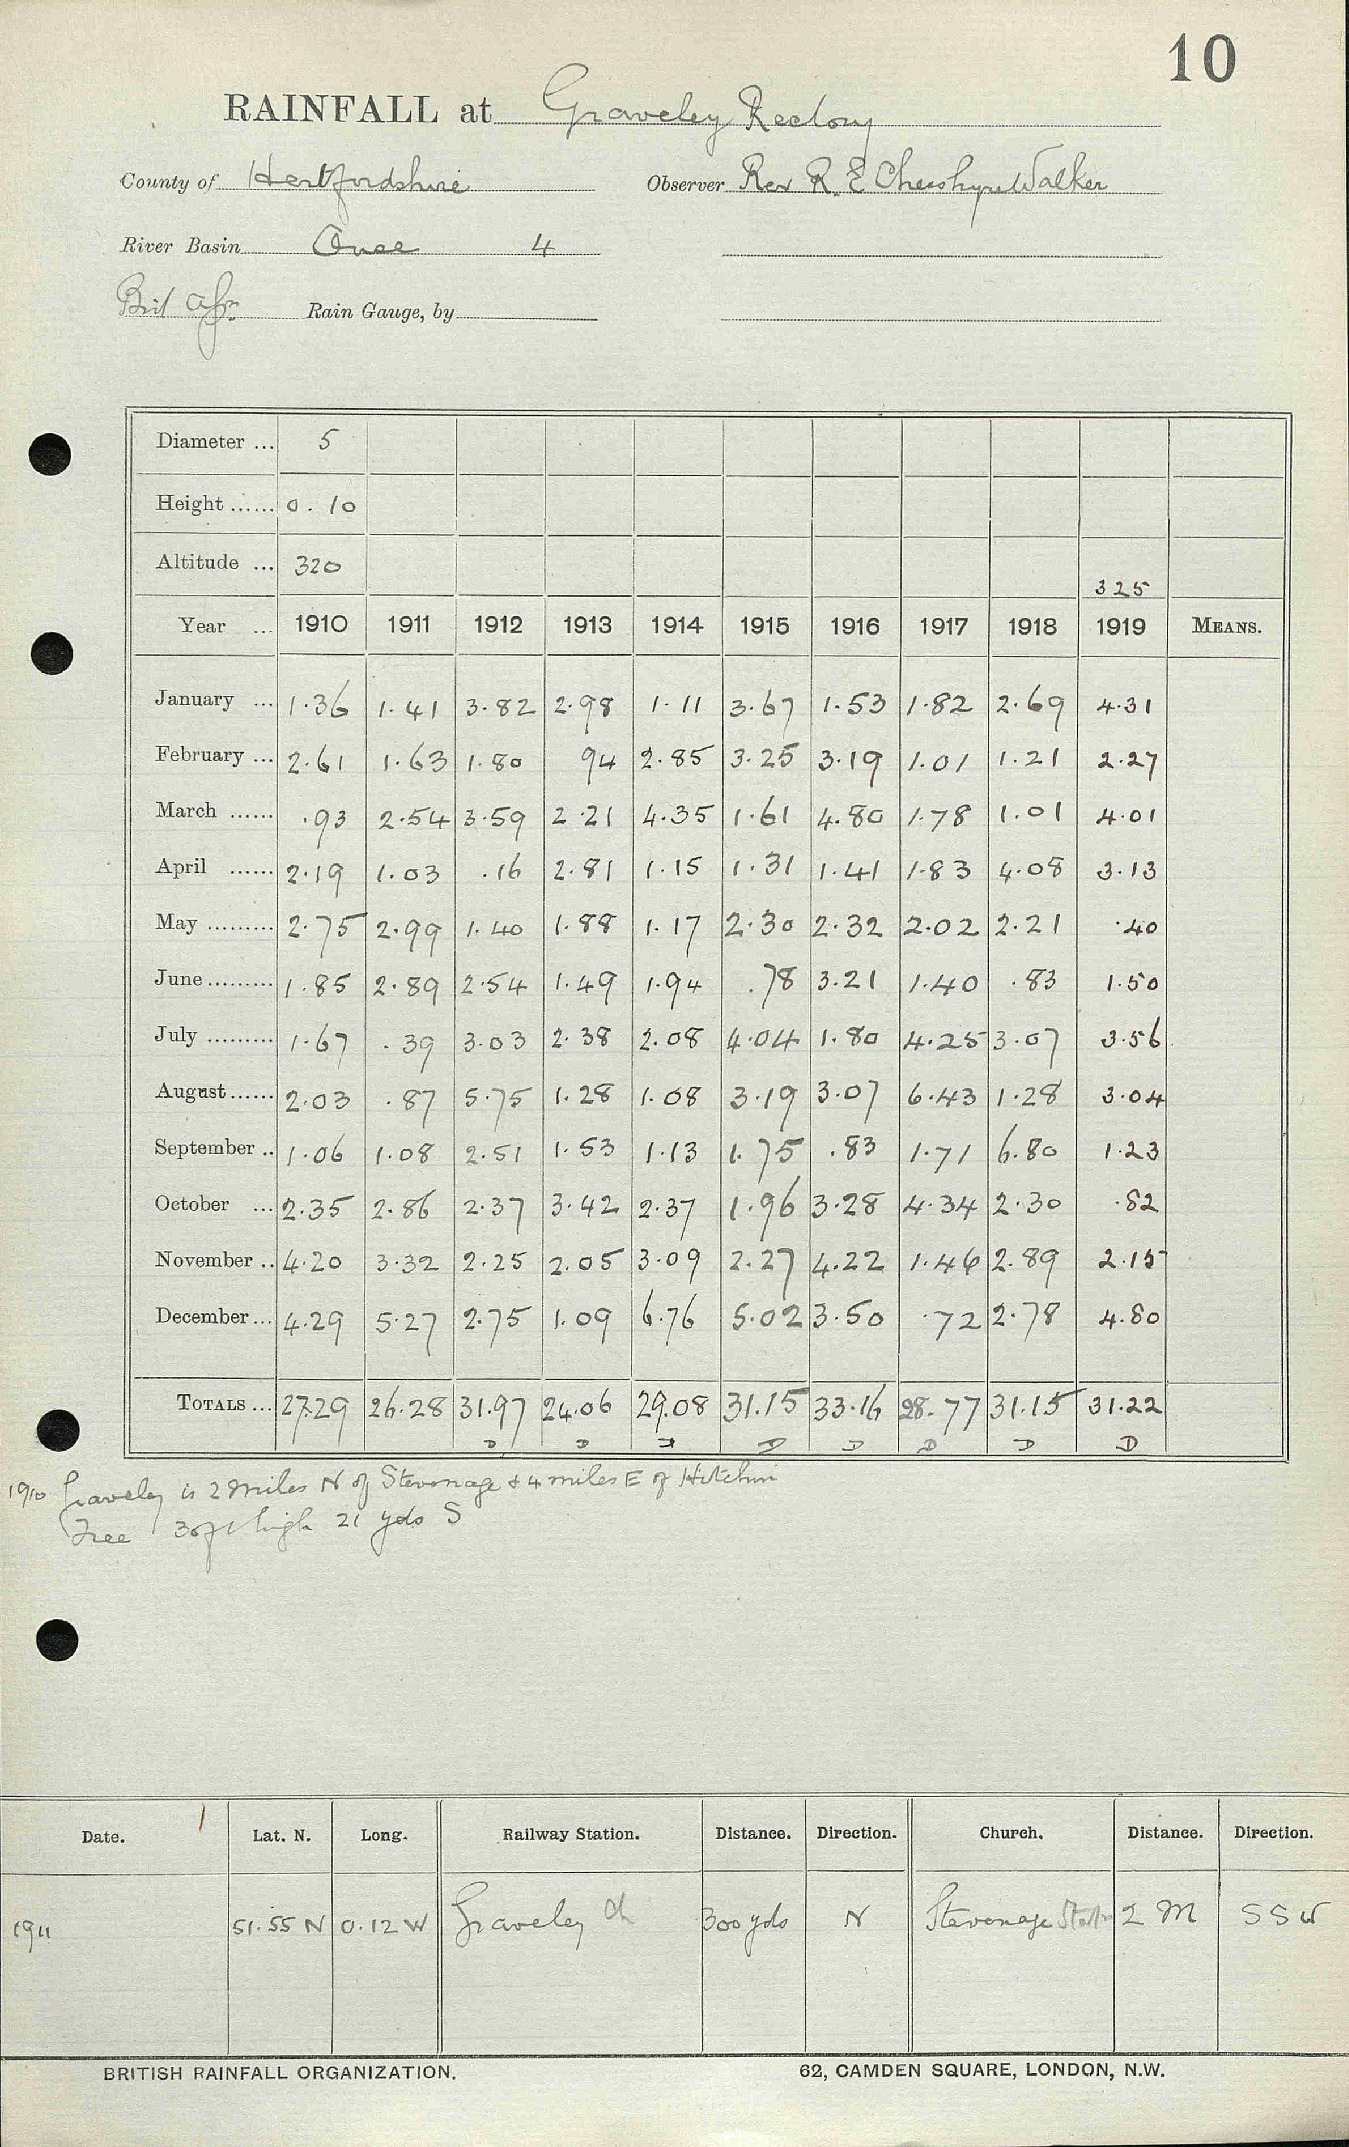 10
RAINFALL at Graveley Rectory
County of Hertfordshire Observer Rev R. E Cheeshyre Walker
River Basin Ouse 4
Brit Assn Rain Gauge, by
Diameter ... 5
Height ...... 0. 10
Altitude ... 320 325
Year ... 1910 1911 1912 1913 1914 1915 1916 1917 1918 1919 MEANS.
January ... 1.36 1.41 3.82 2.98 1.11 3.67 1.53 1.82 2.69 4.31
February ... 2.61 1.63 1.80 94 2.85 3.25 3.19 1.01 1.21 2.27
March ...... .93 2.54 3.59 2.21 4.35 1.61 4.80 1.78 1.01 4.01
April ...... 2.19 1.03 .16 2.81 1.15 1.31 1.41 1.83 4.08 3.13
May ......... 2.75 2.99 1.40 1.88 1.17 2.30 2.32 2.02 2.21 .40
June ......... 1.85 2.89 2.54 1.49 1.94 .78 3.21 1.40 .83 1.50
July ......... 1.67 .39 3.03 2.38 2.08 4.04 1.80 4.25 3.07 3.56
August ...... 2.03 .87 5.75 1.28 1.08 3.19 3.07 6.43 1.28 3.04
September .. 1.06 1.08 2.51 1.53 1.13 1.75 .83 1.71 6.80 1.23
October ... 2.35 2.86 2.37 3.42 2.37 1.96 3.28 4.34 2.30 .82
November .. 4.20 3.32 2.25 2.05 3.09 2.27 4.22 1.46 2.89 2.15
December ... 4.29 5.27 2.75 1.09 6.76 5.02 3.50 .72 2.78 4.80
TOTALS ... 27.29 26.28 31.97 24.06 29.08 31.15 33.16 28.77 31.15 31.22
D D D D D D D D
1910 Graveley is 2 miles N of Stevenage & 4 miles E of Hitchin
Tree 30ft high 21 yds S
Date. Lat. N. Long. Railway Station. Distance. Direction. Church. Distance. Direction.
1911 51.55 N 0.12 W Graveley Ch 300 yds N Stevenage Statn 2 M SSW
BRITISH RAINFALL ORGANIZATION. 62, CAMDEN SQUARE, LONDON, N.W.